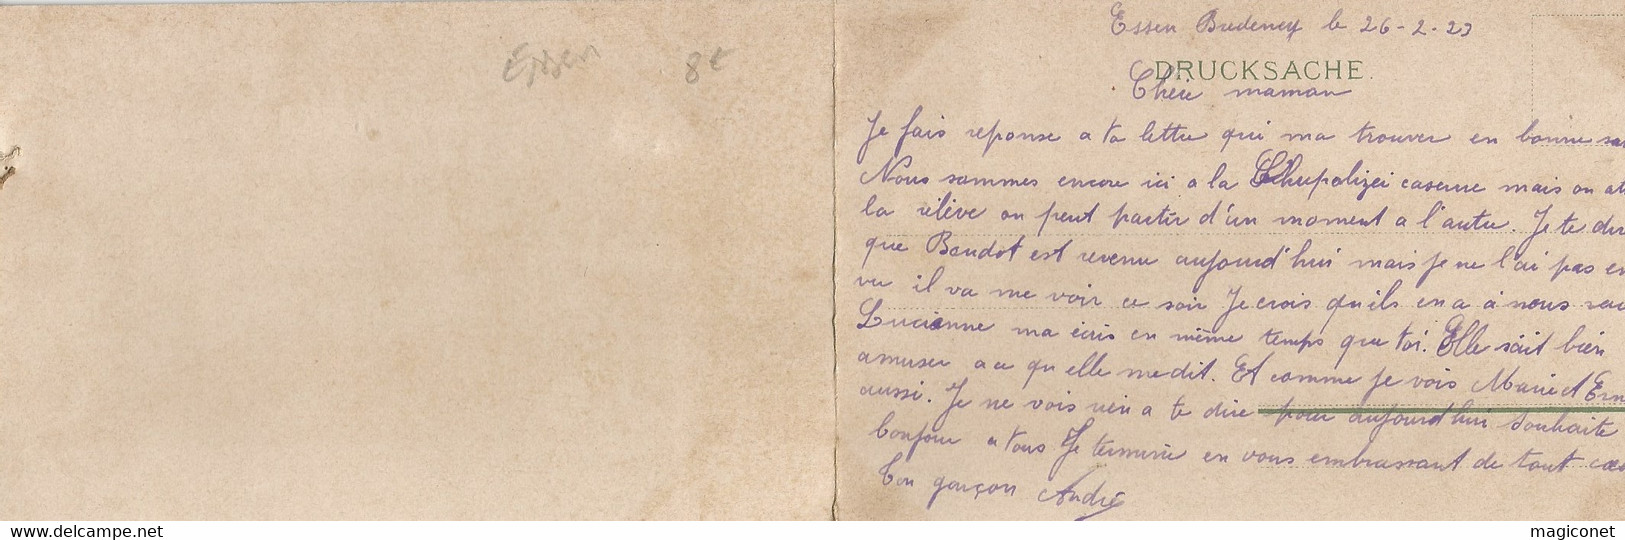 Essen 8€
Essen Bredeney le 26-2-23
DRUCKSACHE.
Chère maman
Je fais reponse a ta lettre qui ma trouver en bonne san
Nous sommes encore ici a la Chupolizei caserne mais on att
la relève on peut partir d'un moment a l'autre. Je te dir
que Baudot est revenu aujourd'hui mais je ne l'ai pas en
vu il va me voir ce soir Je crois qu'ils en a à nous
Lucienne ma écris en même temps que toi. Elle sait bien
amuser a ce qu'elle me dit. Et comme je vois Marie et Ern
aussi. Je ne vois rien a te dire pour aujourd'hui Souhaite
bonjour a tous Je termine en vous embrassant de tout cœu
Ton garçon André
delcampe.net
magiconet